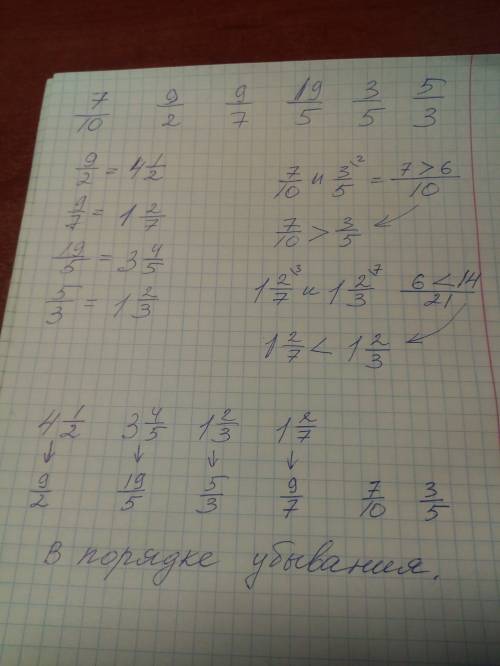 7/10 9/2 9/7 19/5 3/5 5/3
9/2 = 4 1/2
9/7 = 1 2/7
19/5 = 3 4/5
5/3 = 1 2/3
7/10 и 3/5 ² = 7 > 6 / 10
7/10 > 3/5
1 2/7 ³ и 1 2/3 ⁷ 6 < 14 / 21
1 2/7 < 1 2/3
4 1/2 3 4/5 1 2/3 1 2/7
↓ ↓ ↓ ↓
9/2 19/5 5/3 9/7 7/10 3/5
в порядке убывания.